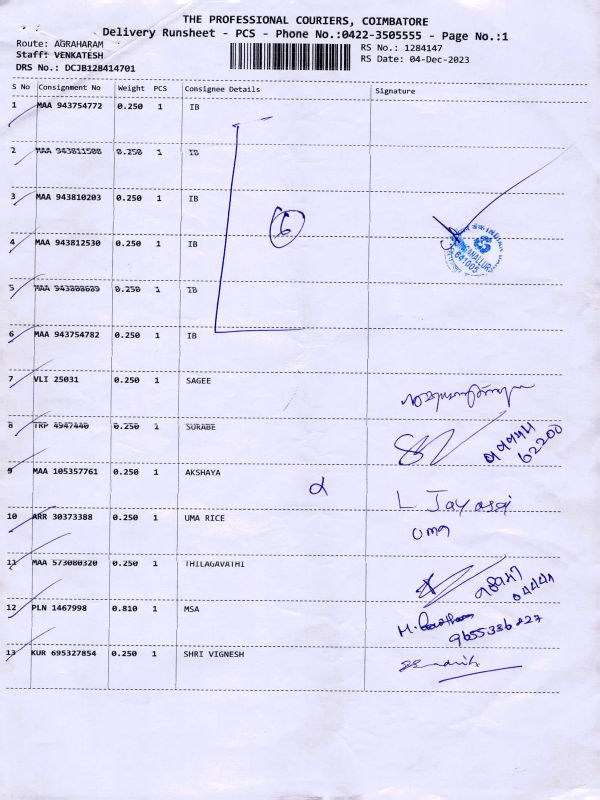 THE PROFESSIONAL COURIERS, COIMBATORE
Delivery Runsheet - PCS - Phone No.:0422-3505555 - Page No.:1
Route: AGRAHARAM
RS No.: 1284147
Staff: VENKATESH
RS Date: 04-Dec-2023
DRS No.: DCJB128414701
S No Consignment No Weight PCS Consignee Details Signature
1 MAA 943754772 0.250 1 IB
2 MAA 943811508 0.250 1 IB
3 MAA 943810203 0.250 1 IB
6
4 MAA 943812530 0.250 1 IB
641005
5 MAA 943808689 0.250 1 IB
6 MAA 943754782 0.250 1 IB
7 VLI 25031 0.250 1 SAGEE
8 TRP 4947440 0.250 1 SURABE
99944
62200
9 MAA 105357761 0.250 1 AKSHAYA
L
10 ARR 30373388 0.250 1 UMA RICE
Uma
11 MAA 573080320 0.250 1 THILAGAVATHI
98947
04444
12 PLN 1467998 0.810 1 MSA
9655336227
13 KUR 695327854 0.250 1 SHRI VIGNESH